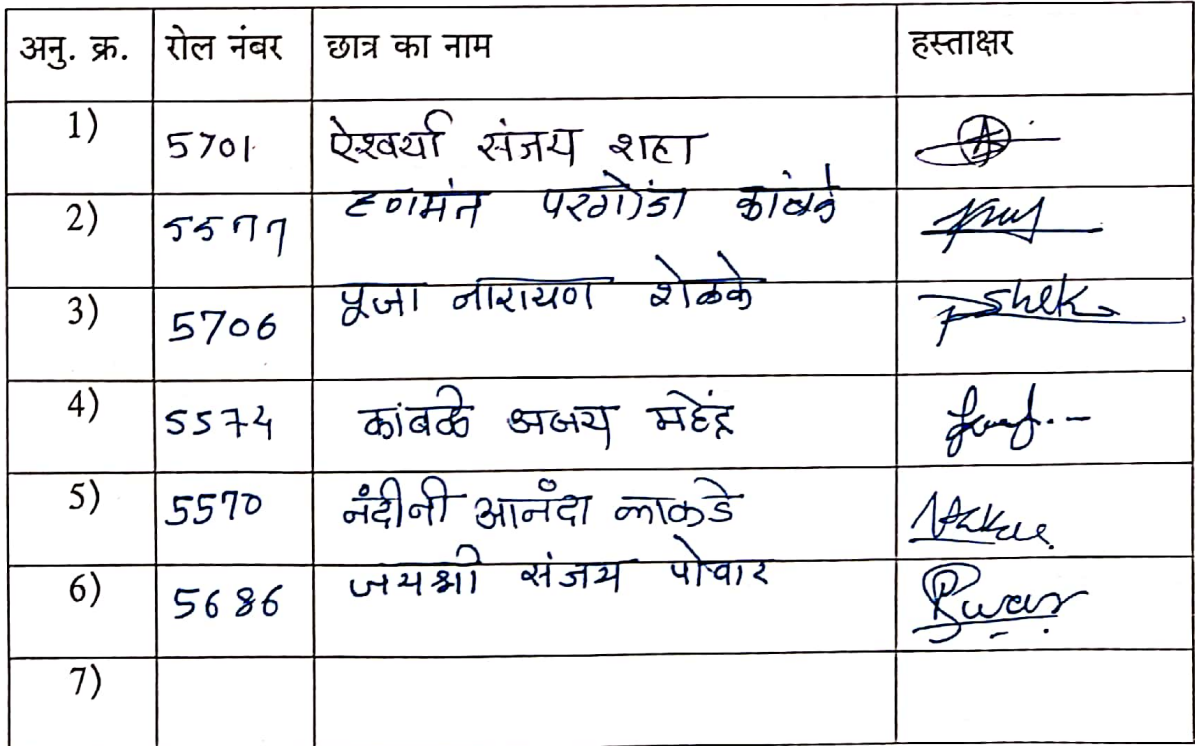 अनु. क्र. रोल नंबर छात्र का नाम हस्ताक्षर
1) 5701 ऐश्वर्या संजय शहा
2) 5577 हणमंत परगोंडा कांबळे
3) 5706 पूजा नारायण शेळके
4) 5574 कांबळे अजय महेंद्र
5) 5570 नंदीनी आनंदा लाकडे
6) 5686 जयश्री संजय पोवार
7)